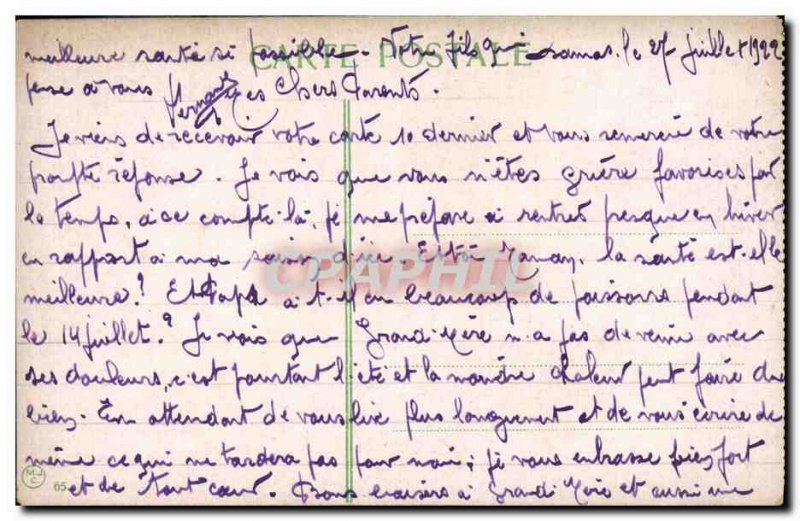 meilleure santé si possible. Votre fils qui Damas, le 27 juillet 1922
CARTE POSTALE
pense à vous
Fernand
Mes Chers Parents.
Je viens de recevoir votre carte 10 dernier et vous remercie de votre
prompte réponse. Je vois que vous n'êtes guère favorisés par
le temps, à ce compte-là, je me prépare à rentrer presque en hiver
en rapport à ma saison d'ici. Et toi Maman, la santé est-elle
CPAPHIL
meilleure? Et Papa a-t-il eu beaucoup de poissons pendant
le 14 juillet? Je vois que Grand-Mère n'a pas de veine avec
ses douleurs, c'est pourtant l'été et la moindre chaleur peut faire du
bien. En attendant de vous lire plus longuement et de vous écrire de
même ce qui ne tardera pas pour moi; je vous embrasse bien fort
et de tout cœur. Bons baisers à Grand-Mère et aussi une
M.J
C.
65